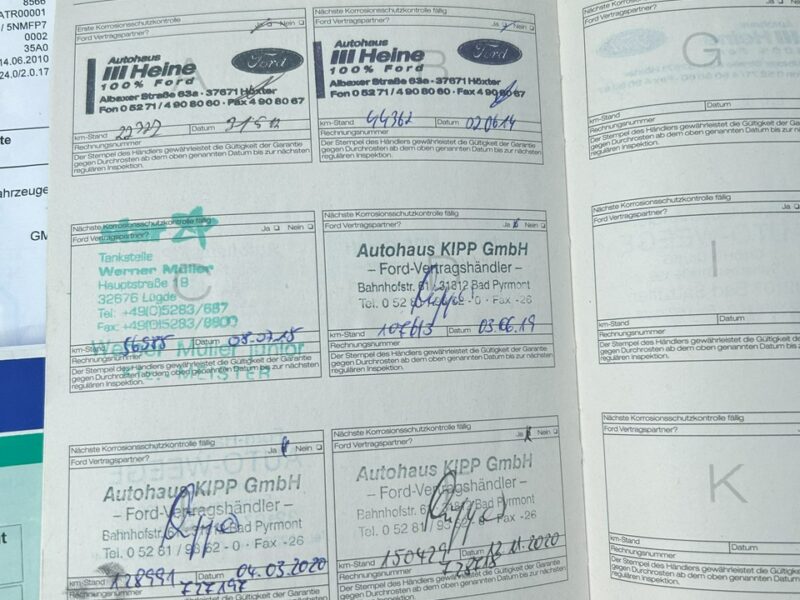 8566
ATR00001
/ 5NMFP7
0002
35A0
14.06.2010
24.0/2.0.17
ahrzeuge
GM
Erste Korrosionsschutzkontrolle
Ford Vertragspartner?
Ja Nein
Autohaus
Heine
100% Ford
Ford
Albaxer Straße 63a · 37671 Höxter
Fon 0 52 71 / 4 90 80 60 · Fax 4 90 80 67
km-Stand Datum
Rechnungsnummer
Der Stempel des Händlers gewährleistet die Gültigkeit der Garantie
gegen Durchrosten ab dem oben genannten Datum bis zur nächsten
regulären Inspektion.
Nächste Korrosionsschutzkontrolle fällig
Ford Vertragspartner?
Ja Nein
Autohaus
Heine
100% Ford
Ford
Albaxer Straße 63a · 37671 Höxter
Fon 0 52 71 / 4 90 80 60 · Fax 4 90 80 67
km-Stand 44362 Datum 02.06.14
Rechnungsnummer
Der Stempel des Händlers gewährleistet die Gültigkeit der Garantie
gegen Durchrosten ab dem oben genannten Datum bis zur nächsten
regulären Inspektion.
Nächste Korrosionsschutzkontrolle fällig
Ford Vertragspartner?
Ja Nein
C
Tankstelle
Werner Müller
Hauptstraße 19
32676 Lügde
Tel: +49(0)5283/667
Fax: +49(0)5283/8900
km-Stand Datum 08.07.15
Werner Müller junior
Rechnungsnummer
Der Stempel des Händlers gewährleistet die Gültigkeit der Garantie
gegen Durchrosten ab dem oben genannten Datum bis zur nächsten
regulären Inspektion.
Nächste Korrosionsschutzkontrolle fällig
Ford Vertragspartner?
Ja Nein
D
Autohaus KIPP GmbH
– Ford-Vertragshändler –
Bahnhofstr. 61 / 31812 Bad Pyrmont
Tel. 0 52 - 0 · Fax -26
km-Stand 107613 Datum 03.06.19
Rechnungsnummer
Der Stempel des Händlers gewährleistet die Gültigkeit der Garantie
gegen Durchrosten ab dem oben genannten Datum bis zur nächsten
regulären Inspektion.
Nächste Korrosionsschutzkontrolle fällig
Ford Vertragspartner?
Ja Nein
Autohaus KIPP GmbH
– Ford-Vertragshändler –
Bahnhofstr. Bad Pyrmont
Tel. 0 52 81 / 93 62 - 0 · Fax -26
km-Stand 128991 Datum 04.03.2020
Rechnungsnummer 727197
Der Stempel des Händlers gewährleistet die Gültigkeit der Garantie
gegen Durchrosten ab dem oben genannten Datum bis zur nächsten
Nächste Korrosionsschutzkontrolle fällig
Ford Vertragspartner?
Ja Nein
Autohaus KIPP GmbH
– Ford-Vertragshändler –
Bahnhofstr. Bad Pyrmont
Tel. 0 52 81 62 - 0 · Fax -26
km-Stand 150429 Datum 12.11.2020
Rechnungsnummer
Der Stempel des Händlers gewährleistet die Gültigkeit der Garantie
gegen Durchrosten ab dem oben genannten Datum bis zur nächsten
regulären Inspektion.
G
km-Stand Datum
Rechnungsnummer
Der Stempel des Händlers gewährleistet die Gültigkeit der
gegen Durchrosten ab dem oben genannten Datum bis zur
regulären Inspektion.
Nächste Korrosionsschutzkontrolle fällig
Ford Vertragspartner?
I
km-Stand Datum
Rechnungsnummer
Der Stempel des Händlers gewährleistet die Gültigkeit der
gegen Durchrosten ab dem oben genannten Datum bis
regulären Inspektion.
Nächste Korrosionsschutzkontrolle fällig
Ford Vertragspartner?
K
km-Stand Datum
Rechnungsnummer
Der Stempel des Händlers gewährleistet die Gültigkeit
gegen Durchrosten ab dem oben genannten Datum
regulären Inspektion.